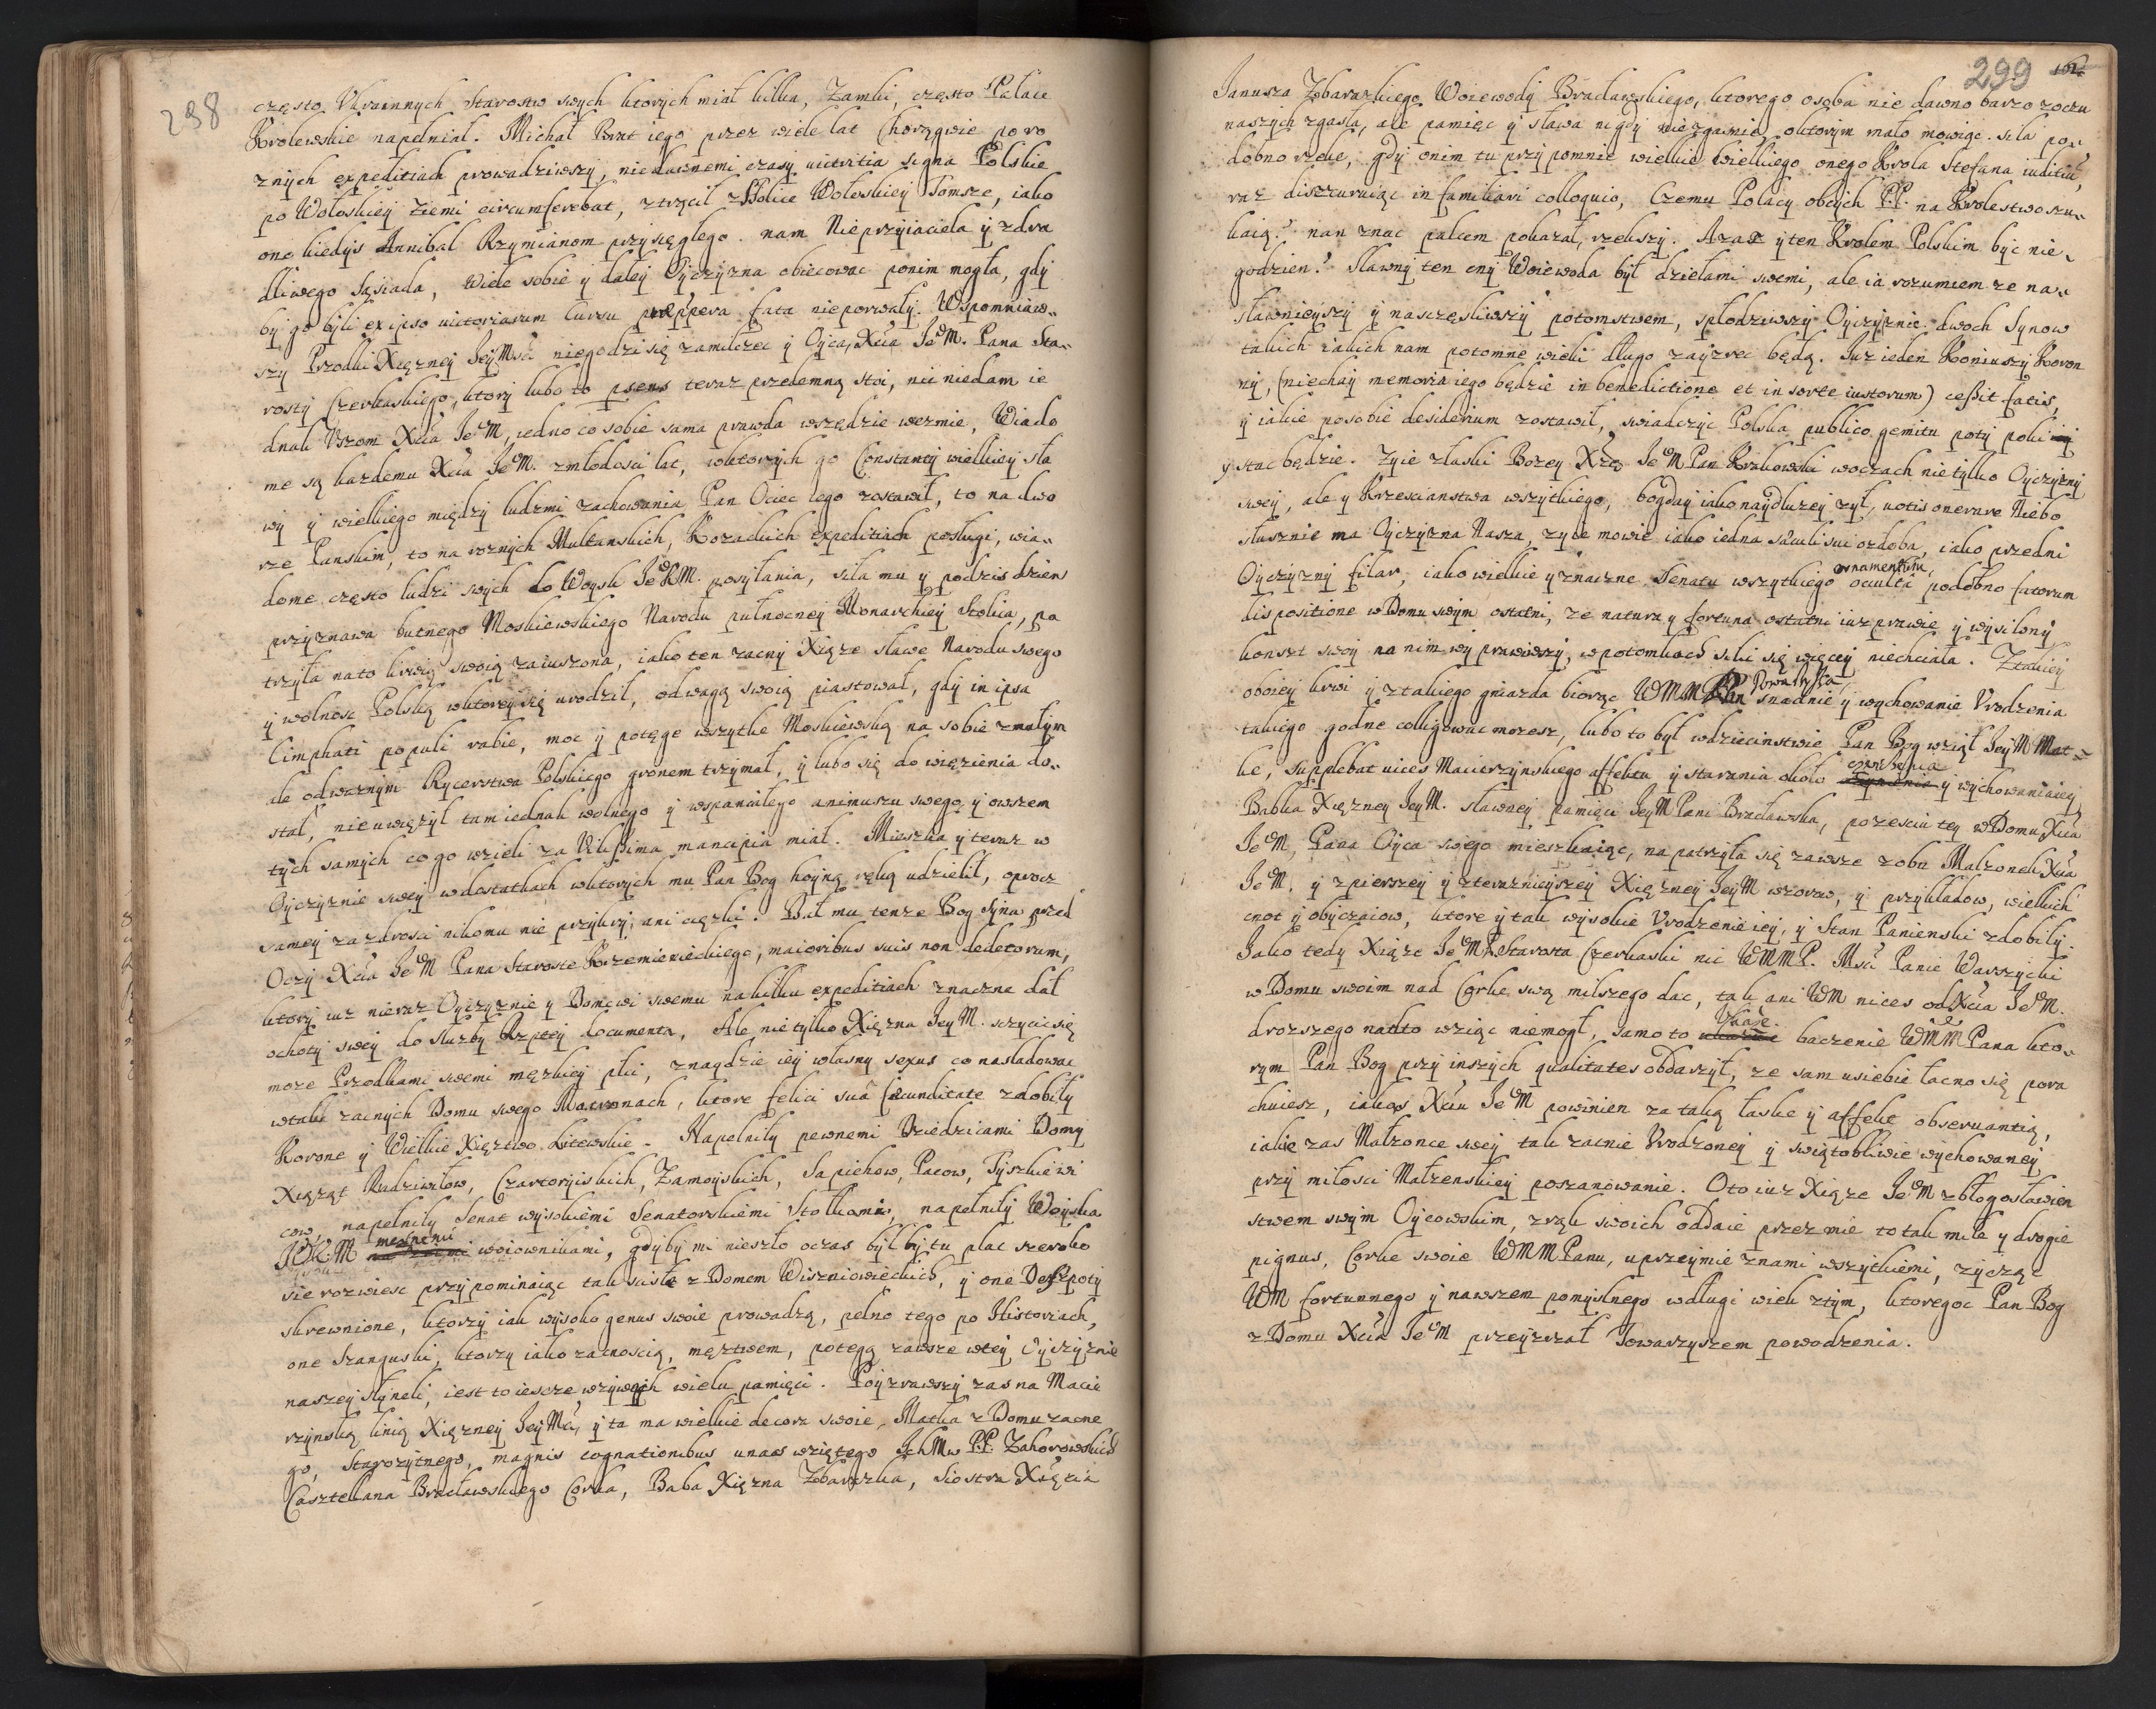 298
często Vkrainnych Starostw swych ktorych miał kilka, Zamki, często Pałace
Krolewskie napełniał. Michał Brat iego przez wiele lat Chorągwie po ro
znych expeditiach prowadziwszy, niedawnemi czasy victritia signa Polskie
po Wołoskiey Ziemi circumferebat, ztrącił z Stolice Wołoskiey Tomszę, iako
one kiedys Annibal Rzymianom przysięgłego nam Nieprzyiaciela y zdra
dliwego Sąsiada, Wiele sobie y daley Oyczyzna obiecowac ponim mogła, gdy
by go byli ex ipso victoriarum cursu præpera fata nieporwały. Wspomniaw„
szy Przodki Xiężney JeyMsci niegodzi się zamilczec y Oyca, Xcia JeM. Pana Sta„
rosty Czerkaskiego, ktory lubo to psens teraz przedemną stoi, nic niedam ie
dnak Vszom Xcia JeM, iedno co sobie sama prawda wszędzie wezmie, Wiado
me są kazdemu Xcia JeM. zmłodosci lat, wktorych go Constanty wielkiey sła
wy y wielkiego między ludzmi zachowania Pan Ociec iego zostawił, to na dwo
rze Panskim, to na roznych Multanskich, Kozackich expeditiach posługi, wia„
dome często ludzi swych do Woysk JeKM. posyłania, siła mu y podzis dzien
przyznawa butnego Moskiewskiego Narodu pułnocney Monarchiey Stolica, pa
trzyła na to krwią swoią zaiuszona, iako ten zacny Xiąze sławę Narodu swego
y wolnosc Polską wktorey się urodził, odwagą swoią piastował, gdy in ipsa
limphati populi rabie, moc y potęgę wszytkę Moskiewską na sobie z małym
ale odwaznym Rycerstwa Polskiego gronem trzymał, y lubo się do więzienia do„
stał, nie uwięzył tam iednak wolnego y wspaniałego animuszu swego, y owszem
tych samych co go wzieli za Vilissima mancipia miał. Mieszka y teraz w
Oyczyznie swey w dostatkach wktorych mu Pan Bog hoyną ręką udzielił, oprocz
samey zazdrosci nikomu nie przykry, ani cięzki. Dał mu tenze Bog Syna przed
Oczy Xcia JeM Pana Starostę Krzemienieckiego, maioribus suis non dedecorum,
ktory iuz nieraz Oyczyznie y Domowi swemu na kilku expeditiach znaczne dał
ochoty swey do Sluzby Rzptey documenta, Ale nie tylko Xięzna JeyM. szczycic się
moze Przodkami swemi męzkiey płci, znaydzie iey własny sexus co nasladowac
wtak zacnych Domu swego Matronach, ktore felici suâ fæcunditate zdobiły
Koronę y Wielkie Xięztwo Litewskie. Napełniły pewnemi Dziedzicami Domy
Xiążąt Radziwiłow, Czartoryiskich, Zamoyskich, Sapiehow, Pacow, Tyszkiewi
cow, napełniły Senat wysokiemi Senatorskiemi Stołkami, napełniły Woyska
JKM męznemi woiownikami, gdyby mi nieszło oczas był by tu plac szeroko
sie rozwiesc przypominaiąc tak scisłe z Domem Wiszniowieckich, y one Despoty
skrewnione, ktorzy iak wysoko genus swoie prowadzą, pełno tego po Historiach,
one Szanguski, ktorzy iako zacnoscią, męztwem, potęgą zawsze wtey Oyczyznie
naszey słyneli, iest to ieszcze wzywych wielu pamięci. Poyzrawszy zas na Macie
rzynską linią Xięzney JeyMci, y ta ma wielkie decora swoie, Matka z Domu zacne
go, Starozytnego, magnis cognationibus unaes wziętego IchMw P.P. Zahorowskich
Casztellana Bracławskiego Corka, Baba Xięzna Zbarazka, Siostra Xiązęcia
299
Janusza Zbarazkiego Woiewody Bracławskiego, ktorego osoba nie dawno barzo zoczu
naszych zgasła, ale pamięc y sława nigdy niezgasnie, oktorym mało mowiąc siła po„
dobno rzekę, gdy onim tu przypomnię wielkie wielkiego onego Krola Stefana iuditiū,
raz discuruiąc in familiari colloquio, Czemu Polacy obcych P.P. na Krolestwo szu„
kaią? nan znac palcem pokazał, rzekszy. Azaz y ten Krolem Polskim byc nie„
godzien? Sławny ten cny Woiewoda był dziełami swemi, ale ia rozumiem ze na„
sławnieyszy y nasczęsliwszy potomstwem, spłodziwszy Oyczyznie dwoch Synow
takich iakich nam potomne wieki długo zayzrec będą. Iuz ieden Koniuszy Koron
ny, (niechay memoria iego będzie in benedictione et in sorte iustorum) cessit fatis,
y iakie posobie desiderium zostawił, swiadczyc Polska publico gemitu poty poki
y stac będzie. Zyie złaski Bozey Xzę JeM Pan Krakowski woczach nie tylko Oyczyzny
swey, ale y Krzescianstwa wszytkiego, bogday iako naydłuzey zył, votis onerare Niebo
słusznie ma Oyczyzna Nasza, zyie mowie iako iedna sæculi sui ozdoba, iako przedni
Oyczyzny filar, iako wielkie y znaczne Senatu wszytkiego ornamentum, occultâ podobno fatorum
dispositione w Domu swym ostatni, ze natura y fortuna ostatni iuz prawie y wysilony
konszt swoy na nim wyprawiwszy, w potomkach silic się więcey niechciała. Ztakiey
oboiey krwi y ztakiego gniazda biorąc WMM Pan Pewnie snadnie y wychowanie Vrodzenia
takiego godne colligowac mozesz, lubo to był wdziecinstwie Pan Bog wziął JeyM Mat„
kę, supplebat vices Macierzynskiego affektu y starania około cwiczenia y wychowania iey
Babka Xięzney JeyM. sławney pamięci JeyM Pani Bracławska, po zesciu tey w Domu Xcia
JeM, Pana Oyca swego mieszkaiąc, napatrzyła się zawsze zobu Małzonek Xcia
JeM. y zpierszey y zteraznieyszey Xięzney JeyM wzorow, y przykładow, wielkich
cnot y obyczaiow, ktore y tak wysokie Vrodzenie iey, y Stan Panienski zdobiły.
Iako tedy Xiąze JeM P. Starosta Czerkaski nic WMMP. Msci Panie Warszycki
w Domu swoim nad Corkę swą milszego dac, tak ani WM nic es od Xcia JeM.
drozszego nadto wziąc niemogł, samo to Vkaze baczenie WMM Pana kto„
rym Pan Bog przy inszych qualitates obdarzył, ze sam u siebie łacno się pora
chuiesz, iakąs Xciu JeM powinien za taką łaskę y affekt obseruantią,
iakie zas Małzonce swey tak zacnie Vrodzoney y swiętobliwie wychowaney
przy miłosci Małzenskiey poszanowanie. Oto iuz Xiąze JeM z błogosławien
stwem swym Oycowskim, zrąk swoich oddaie przez mię to tak miłe y drogie
pignus, Corkę swoię WMM Panu, uprzeymie z nami wszytkiemi, zycząc
WM fortunnego y nawszem pomyslnego wdługi wiek ztym, ktoregoc Pan Bog
z Domu Xcia JeM przeyzrzał Towarzyszem powodzenia.